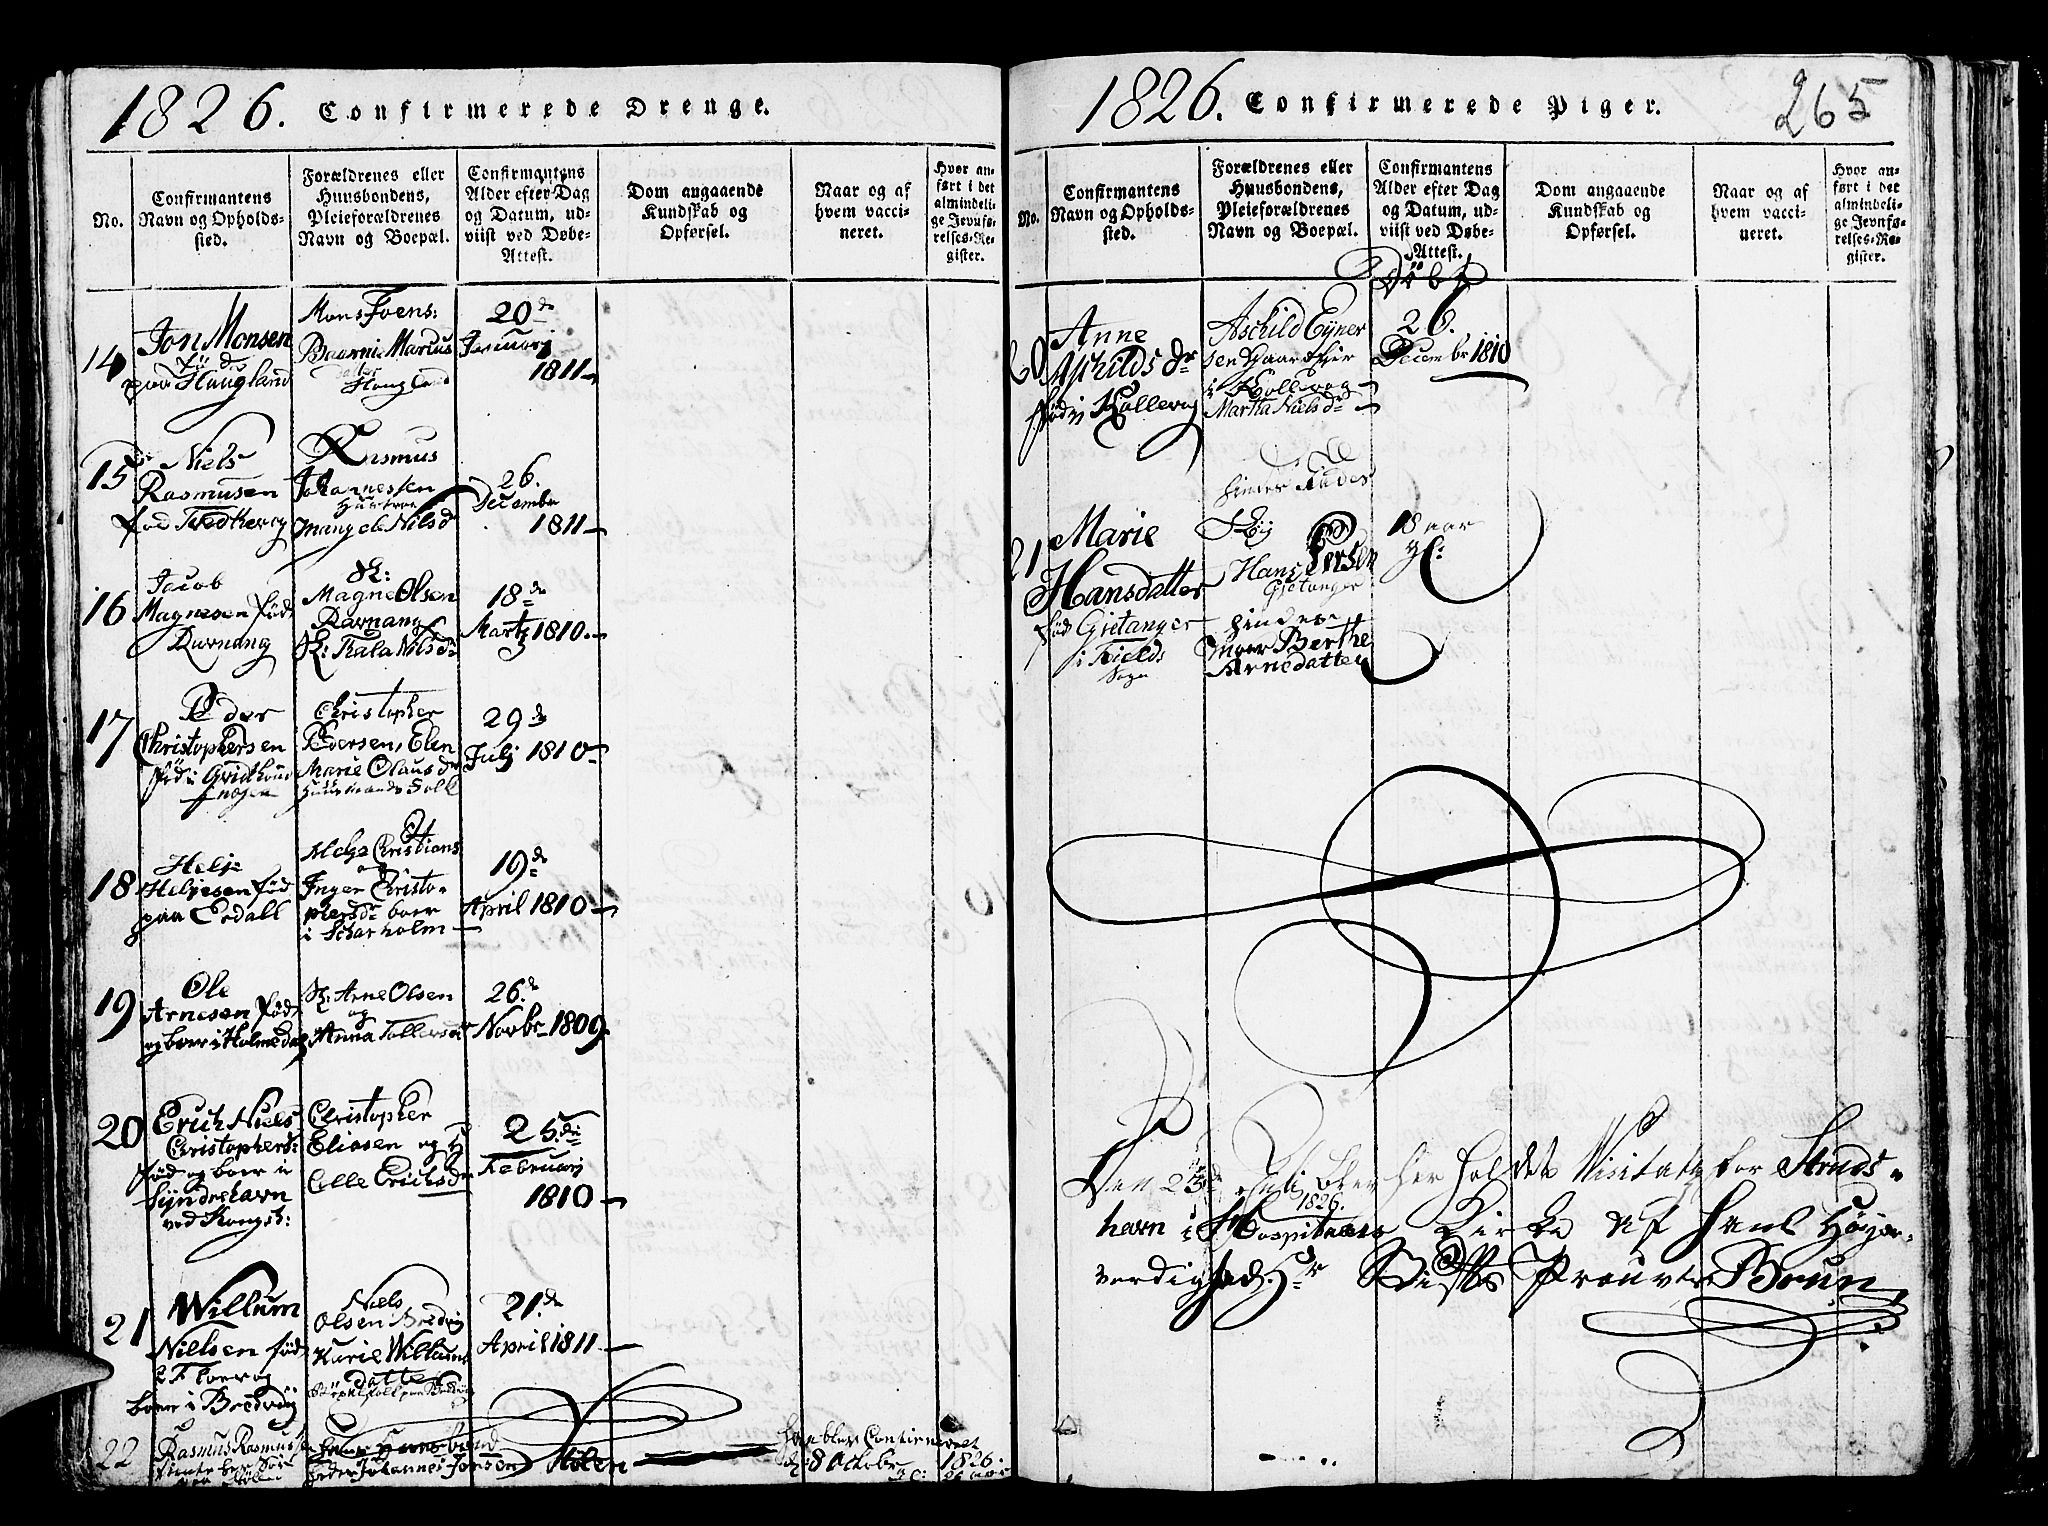 1826. Confirmerede Drenge.
No.
Confirmantens
Navn og Opholds-
sted.
Forældrenes eller
Huusbondens,
Pleieforældrenes
Navn og Boepæl.
Confirmantens
Alder efter Dag
og Datum, ud-
viist ved Døbe-
Attest.
Dom angaaende
Kundskab og
Opførsel.
Naar og af
hvem vacci-
neret.
Hvor an-
ført i det
almindeli-
ge Jevnfø-
relses-Re-
gister.
14
Jon Monsen
fød
paa Haugland
Mons Joens:
Marcus
datter
Haugland
20de
Januarj
1811
15
Niels
Rasmusen
fød
Rasmus
Johannessen
Hustroe
Nilsd
26.
Decembr
1811
16
Jacob
Magnesen fød
Ravnang
Magne Olsen
Ravnang
K: Nilsdr
18de
Martz 1810
17
Peder
Christophersen
fød i
Christopher
Pedersen, Elen
Marie Olausdr
Huusmands Folk
29de
Julj 1810
18
Helje
Heljesen fød
paa
Helje Christians
og
Inger Christo-
phersdr boer
i Scharholm
19de
April 1810
19
Ole
Arnesen fød
og boer i Holmedag
Arne Olsen
og
Anna Tollersdr
26de
Novbr 1809
20
Erich Niels
Christophers:
fød og boer i
Syndrehavn
ved Kongsh:
Christopher
Eliasen og
Erichsdr
25de
Februarj
1810
21
Willum
Nielsen fød
i Floevog
boer i Bredvig
Niels
Olsen Bredvig
Karie Willums
datter
21de
April 1811
22
Rasmus Rasmussen
Huusbond
Peder Johannes Jonsen Hølen
han blev Confirmeret
d: 8 Octobr 1826.
1826. Confirmerede Piger.
265
No.
Confirmantens
Navn og Opholds-
sted.
Forældrenes eller
Huusbondens,
Pleieforældrenes
Navn og Boepæl.
Confirmantens
Alder efter Dag
og Datum, ud-
viist ved Døbe-
Attest.
Dom angaaende
Kundskab og
Opførsel.
Naar og af
hvem vacci-
neret.
Hvor an-
ført i det
almindeli-
ge Jevnfø-
relses-Re-
gister.
Döbt
20
Anne
Aschilds dr
fød i Kollevog
Aschild Eyner
sen Gaardbruger
i Kollevog
Martha Nielsdr
26.
Decembr 1810
21
Marie
Hansdatter
fød Gjetanger
i Fields
Sogn
Hans Persen
Gjetanger
hindes
Moer Berthe
Arnedatter
18 aar
gl:
Den 23de Juli blev her holdet Visitatz for Struds-
1826.
havn i Hospitals Kirke af hans Høyær-
verdighed Hr Stifts Prouvst Brun